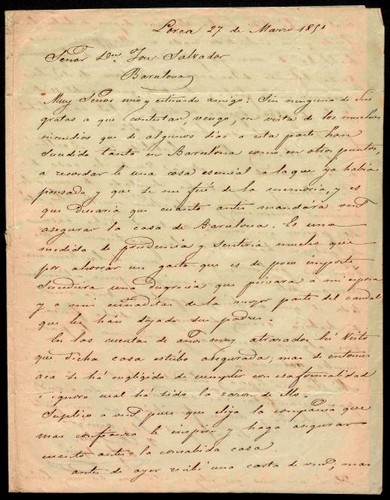 Lorca 27 de Marzo 1851
Señor Dn. José Salvador
Barcelona
Muy Señor mio y estimado amigo: Sin ninguna de sus
gratas a que contestar, vengo, en vista de los muchos
incendios que de algunos dias a esta parte han
sucedido tanto en Barcelona como en otros puntos,
a recordarle una cosa esencial a la que ya habia
pensado y que se me fué de la memoria, y es
que desearia que cuanto antes mandára vmd
asegurar la casa de Barcelona. Es una
medida de prudencia y sentiria mucho que
por ahorrar un gasto que es de poco importe
sucediera una desgracia que privara a mi esposa
y a mis de la mayor parte del caudal
que les han dejado sus padres.
En las cuentas de años muy atrasados hé visto
que dicha casa estubo asegurada, mas de entonces
aca se há negligido de cumplir con esa formalidad
é ignoro cual há sido la razon de ello.
Suplico a vmd pues que elija la compañia que
mas confianza le inspire y haga asegurar
cuanto antes la consabida casa
antes de ayer recibi una carta de vmd, mas